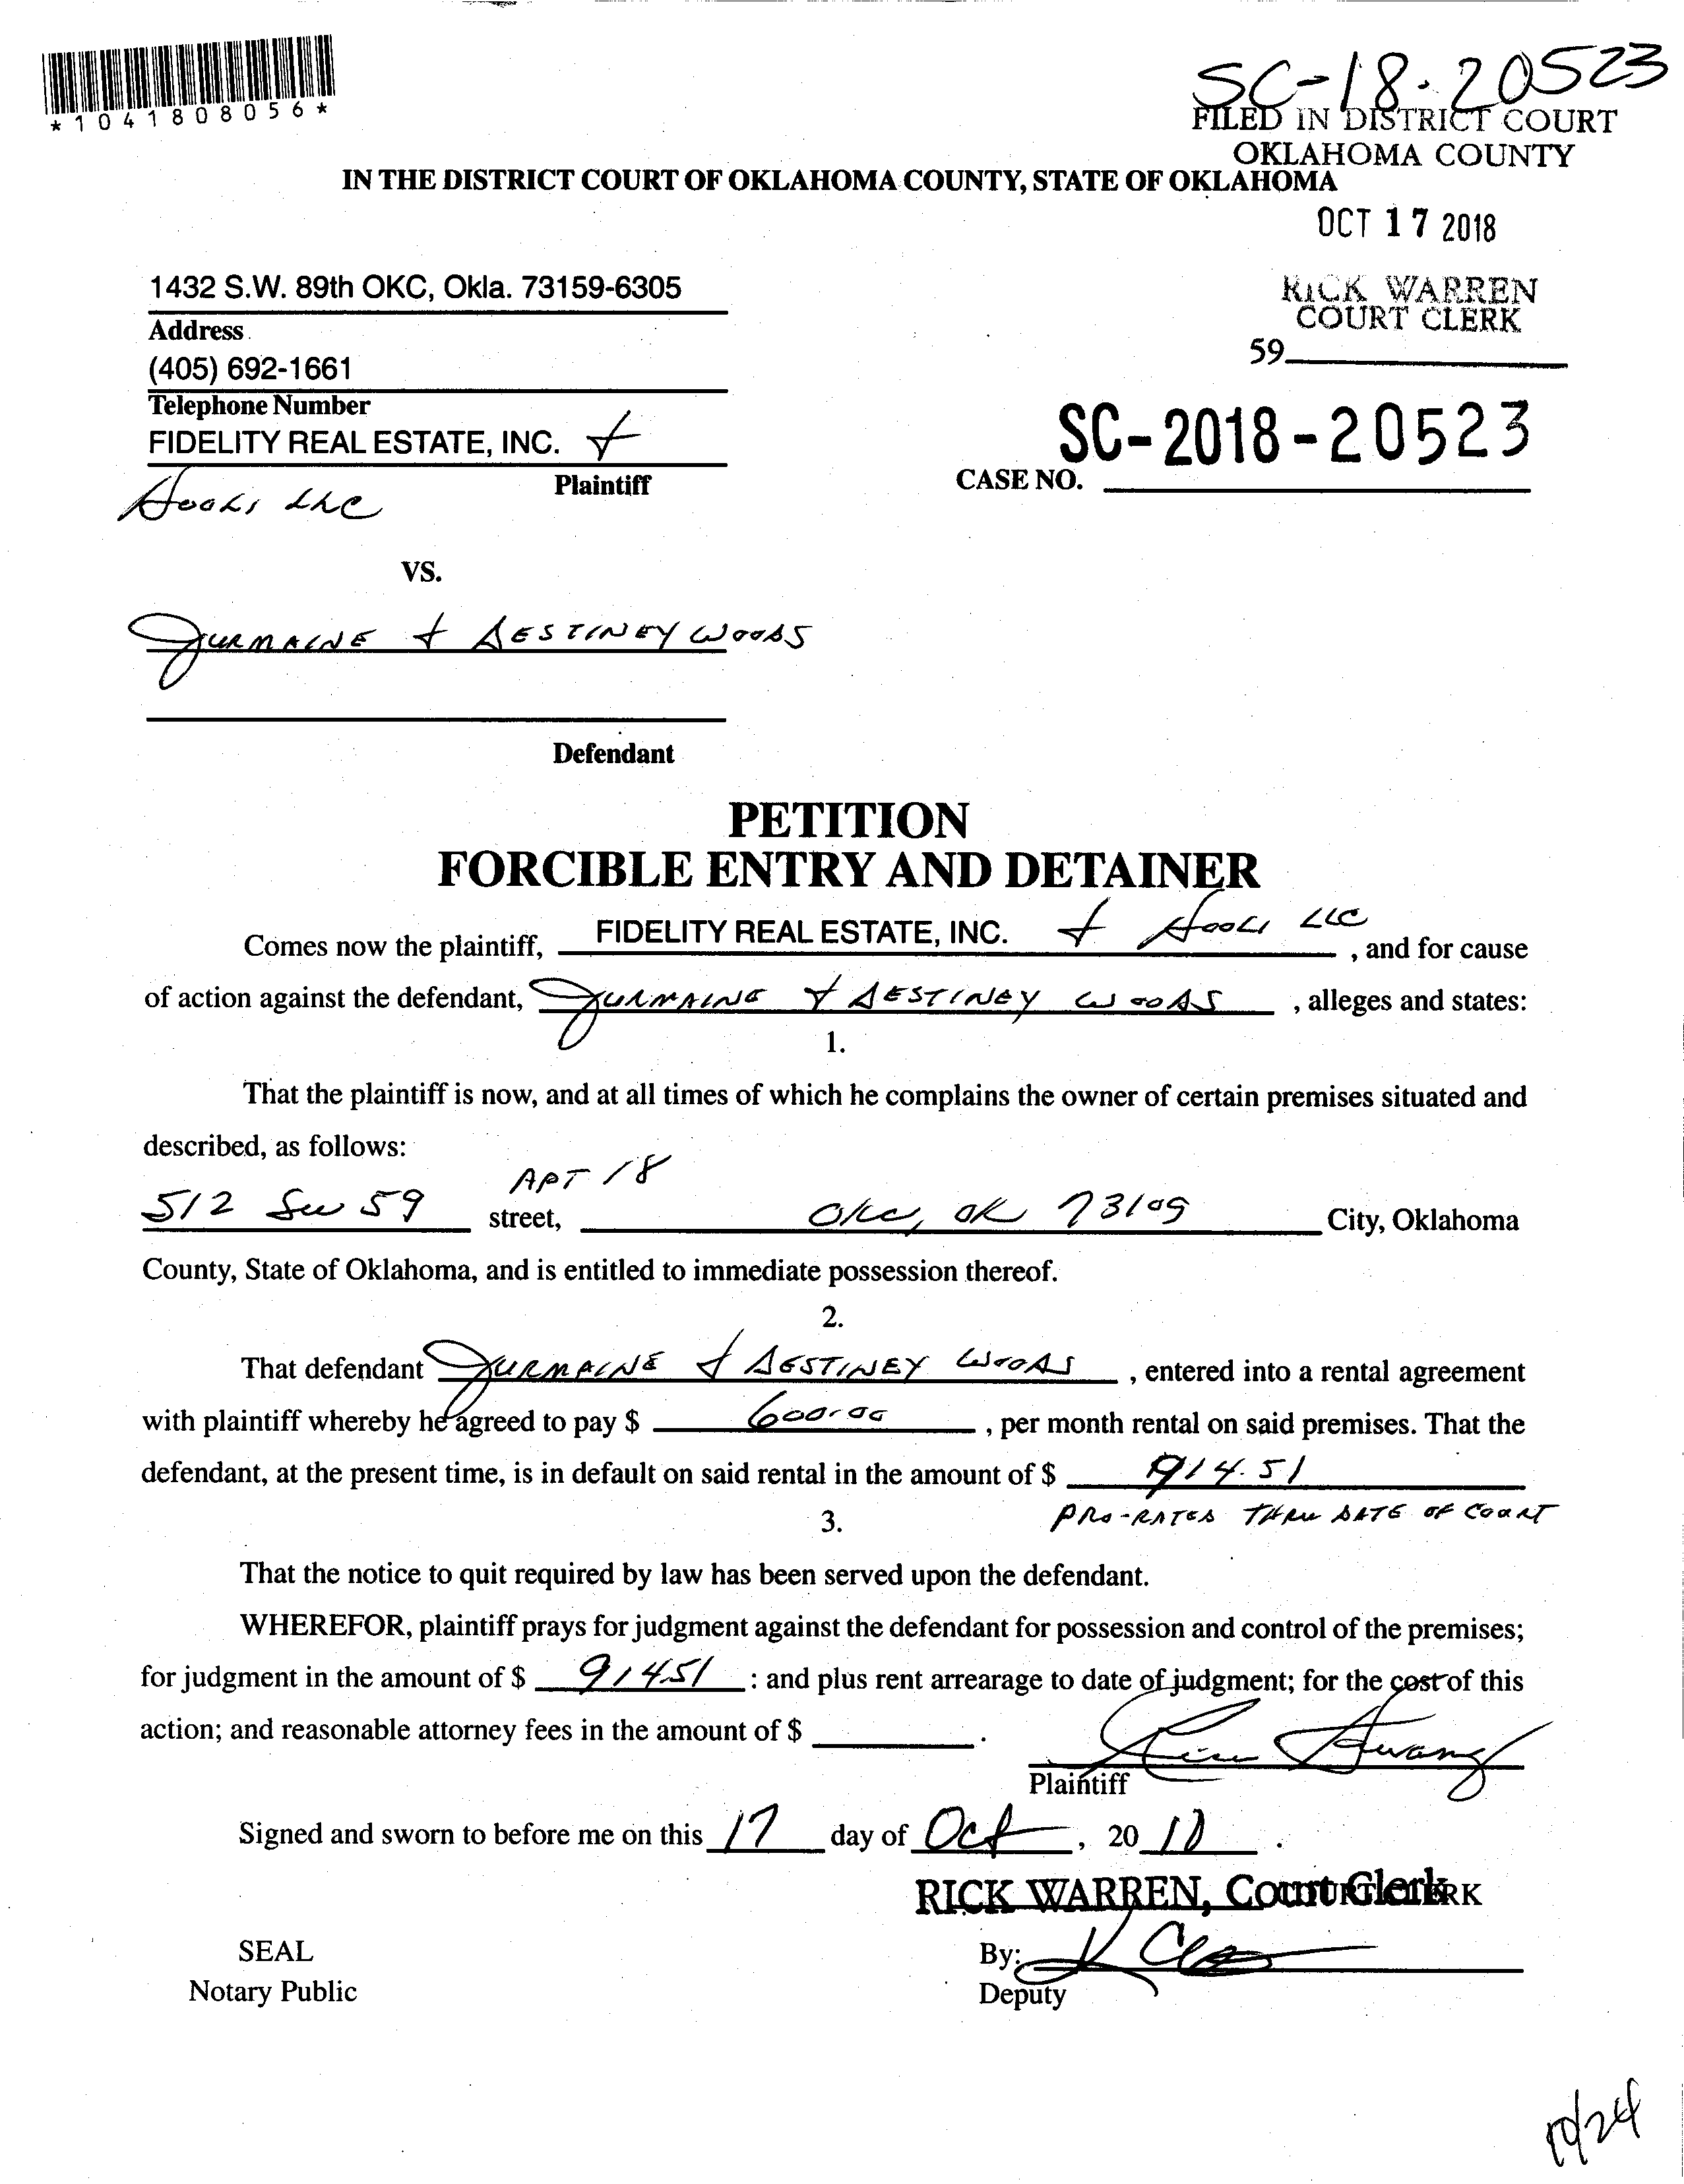 SC-18-20523
*1041808056*
FILED IN DISTRICT COURT
OKLAHOMA COUNTY
IN THE DISTRICT COURT OF OKLAHOMA COUNTY, STATE OF OKLAHOMA
OCT 17 2018
1432 S.W. 89th OKC, Okla. 73159-6305
RICK WARREN
COURT CLERK
Address
59
(405) 692-1661
Telephone Number
FIDELITY REAL ESTATE, INC. +
SC-2018-20523
Plaintiff
CASE NO.
LLC
VS.
JURMAINE + DESTINEY WOODS
Defendant
PETITION
FORCIBLE ENTRY AND DETAINER
Comes now the plaintiff, FIDELITY REAL ESTATE, INC. + LLC, and for cause
of action against the defendant, JURMAINE + DESTINEY WOODS, alleges and states:
1.
That the plaintiff is now, and at all times of which he complains the owner of certain premises situated and
described, as follows:
APT 18
512 SW 59 street, OKC, OK 73109 City, Oklahoma
County, State of Oklahoma, and is entitled to immediate possession thereof.
2.
That defendant JURMAINE + DESTINEY WOODS, entered into a rental agreement
with plaintiff whereby he agreed to pay $ 600.00, per month rental on said premises. That the
defendant, at the present time, is in default on said rental in the amount of $ 914.51
3.
PRO-RATED THRU DATE OF COURT
That the notice to quit required by law has been served upon the defendant.
WHEREFOR, plaintiff prays for judgment against the defendant for possession and control of the premises;
for judgment in the amount of $ 914.51 : and plus rent arrearage to date of judgment; for the cost of this
action; and reasonable attorney fees in the amount of $ .
Plaintiff
Signed and sworn to before me on this 17 day of Oct, 2018.
RICK WARREN, Court Clerk
SEAL
By:
Notary Public
Deputy
10/24